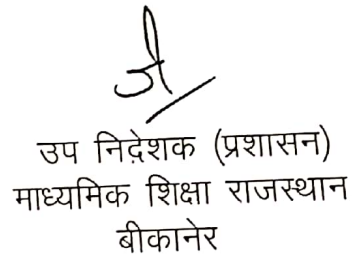 उप निदेशक (प्रशासन)
माध्यमिक शिक्षा राजस्थान
बीकानेर